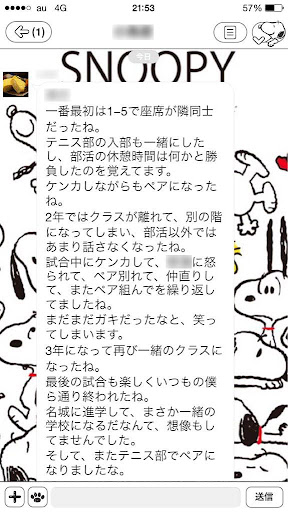 au 4G 21:53 57%
(1)
今日
SNOOPY
一番最初は1−5で座席が隣同士
だったね。
テニス部の入部も一緒にした
し、部活の休憩時間は何かと勝
負したのを覚えてます。
ケンカしながらもペアになった
ね。
2年ではクラスが離れて、別の階
になってしまい、部活以外では
あまり話さなくなったね。
試合中にケンカして、
に怒
られて、ペア別れて、仲直りし
て、またペア組んでを繰り返し
てましたね。
まだまだガキだったなと、笑っ
てしまいます。
3年になって再び一緒のクラスに
なったね。
最後の試合も楽しくいつもの僕
ら通り終われたね。
名城に進学して、まさか一緒の
学校になるだなんて、想像もし
てませんでした。
そして、またテニス部でペアに
なりましたなぁ。
送信